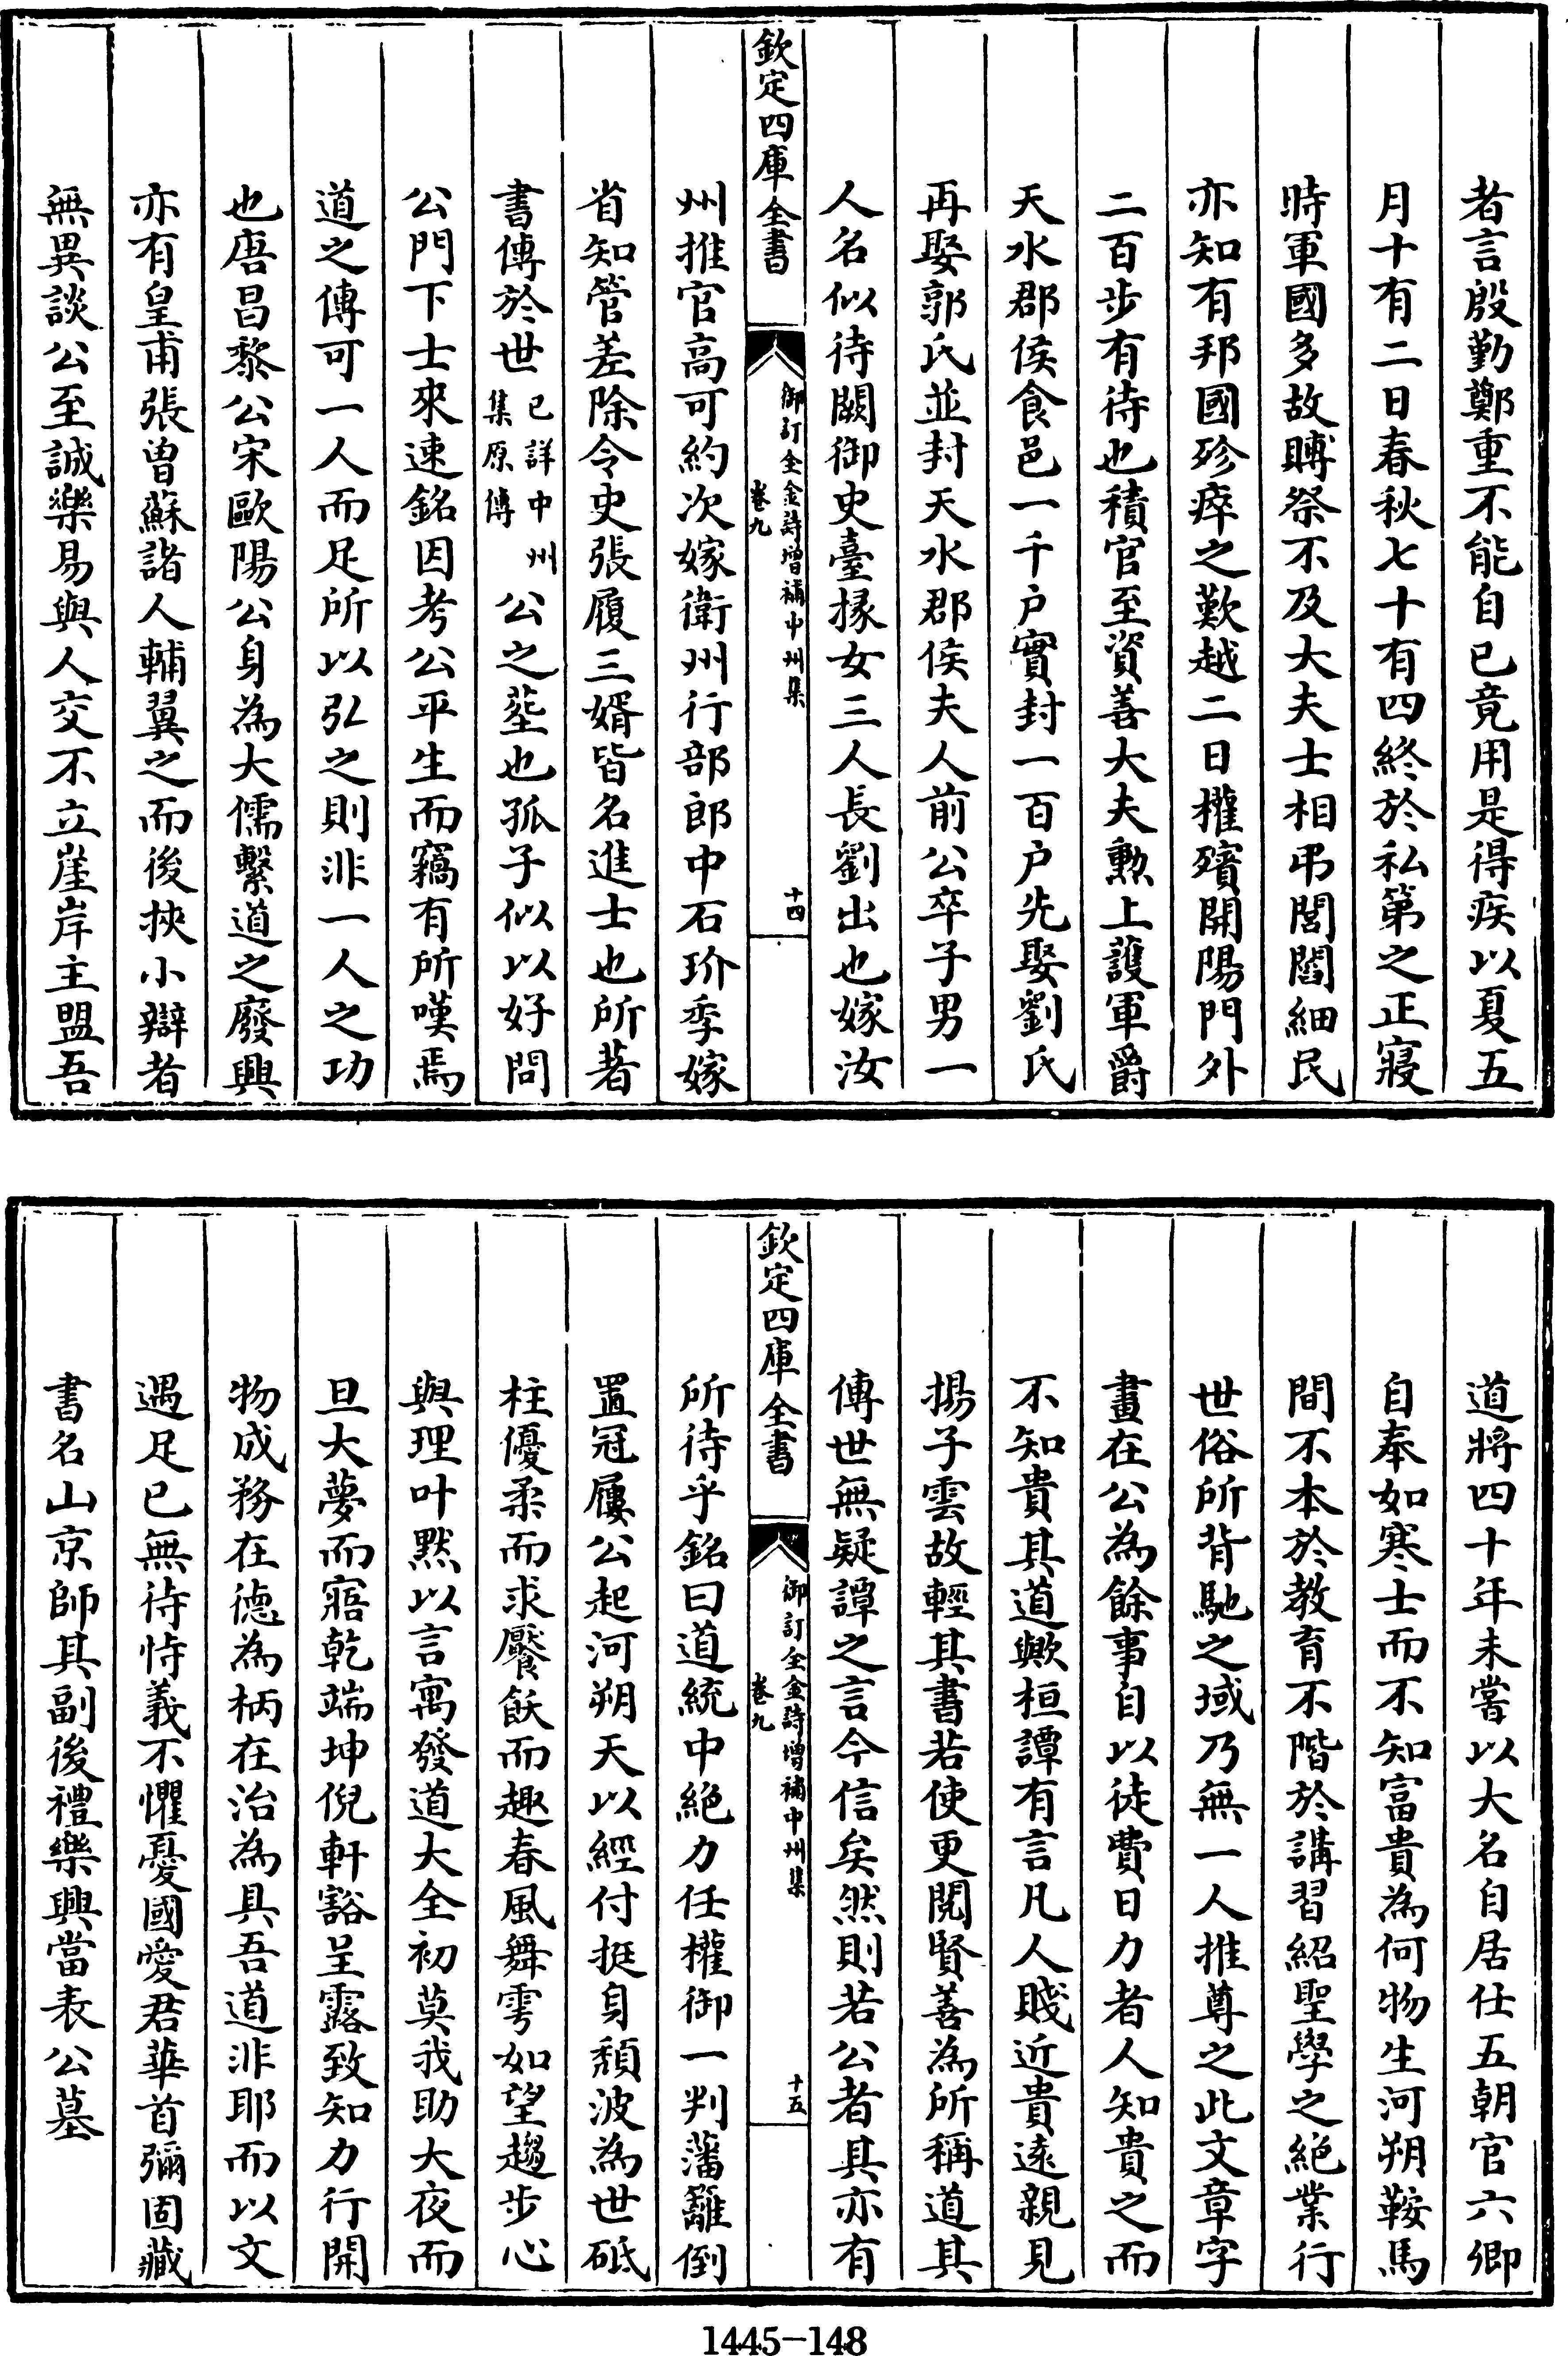 者言殷勤鄭重不能自已竟用是得疾以夏五
月十有二日春秋七十有四終於私第之正寢
時軍國多故賻祭不及大夫士相弔閭閻細民
亦知有邦國殄瘁之歎越二日權殯開陽門外
二百步有待也積官至資善大夫勲上護軍爵
天水郡侯食邑一千户實封一百户先娶劉氏
再娶郭氏並封天水郡侯夫人前公卒子男一
人名似待闕御史臺掾女三人長劉出也嫁汝
欽定四庫全書
御訂全金詩增補中州集
卷九
十四
州推官高可約次嫁衛州行部郎中石玠季嫁
省知管差除令史張履三婿皆名進士也所著
書傳於世已詳中州集原傳公之塟也孤子似以好問
公門下士來速銘因考公平生而竊有所嘆焉
道之傳可一人而足所以弘之則非一人之功
也唐昌黎公宋歐陽公身為大儒繫道之廢興
亦有皇甫張曾蘇諸人輔翼之而後挾小辯者
無異談公至誠樂易與人交不立崖岸主盟吾
道將四十年未嘗以大名自居仕五朝官六卿
自奉如寒士而不知富貴為何物生河朔鞍馬
間不本於教育不階於講習紹聖學之絕業行
世俗所背馳之域乃無一人推尊之此文章字
畫在公為餘事自以徒費日力者人知貴之而
不知貴其道歟桓譚有言凡人賤近貴遠親見
揚子雲故輕其書若使更閱賢善為所稱道其
傳世無疑譚之言今信矣然則若公者其亦有
欽定四庫全書
御訂全金詩增補中州集
卷九
十五
所待乎銘曰道統中絕力任權御一判藩籬倒
置冠屨公起河朔天以經付挺身頹波為世砥
柱優柔而求饜飫而趣春風舞雩如望趨步心
與理叶默以言寓發道大全初莫我助大夜而
旦大夢而寤乾端坤倪軒豁呈露致知力行開
物成務在德為柄在治為具吾道非耶而以文
遇足已無待恃義不懼憂國愛君華首彌固藏
書名山京師其副後禮樂興當表公墓
1445-148